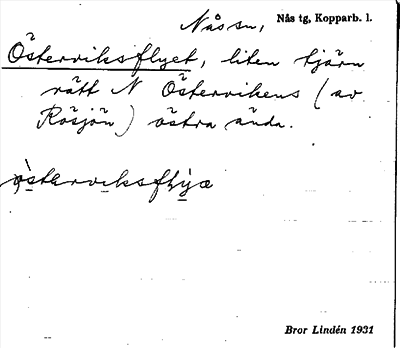 Nås sn, Nås tg, Kopparb. l.
Österviksflyet, liten tjärn
rätt N Östervikens (av
Rösjön) östra ända.
österviksflyæ
Bror Lindén 1931